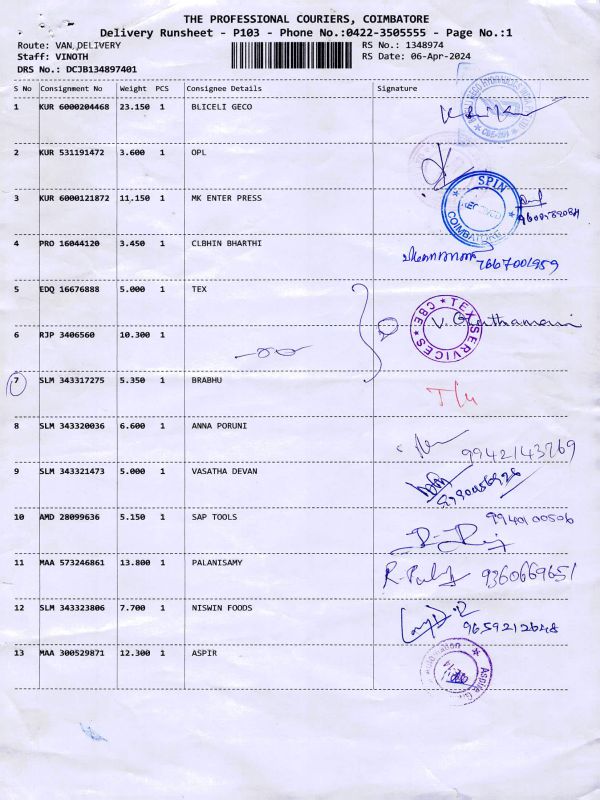 THE PROFESSIONAL COURIERS, COIMBATORE
Delivery Runsheet - P103 - Phone No.:0422-3505555 - Page No.:1
Route: VAN,DELIVERY RS No.: 1348974
Staff: VINOTH RS Date: 06-Apr-2024
DRS No.: DCJB134897401
S No Consignment No Weight PCS Consignee Details Signature
1 KUR 6000204468 23.150 1 BLICELI GECO
2 KUR 531191472 3.600 1 OPL
3 KUR 6000121872 11.150 1 MK ENTER PRESS
SPIN
RECEIVED
COIMBATORE
4 PRO 16044120 3.450 1 CLBHIN BHARTHI 7667001959
5 EDQ 16676888 5.000 1 TEX
TEX SERVICES CBE
6 RJP 3406560 10.300 1
7 SLM 343317275 5.350 1 BRABHU
8 SLM 343320036 6.600 1 ANNA PORUNI 9942143769
9 SLM 343321473 5.000 1 VASATHA DEVAN
10 AMD 28099636 5.150 1 SAP TOOLS 9940100506
11 MAA 573246861 13.800 1 PALANISAMY 9360669651
12 SLM 343323806 7.700 1 NISWIN FOODS 9659212648
13 MAA 300529871 12.300 1 ASPIR